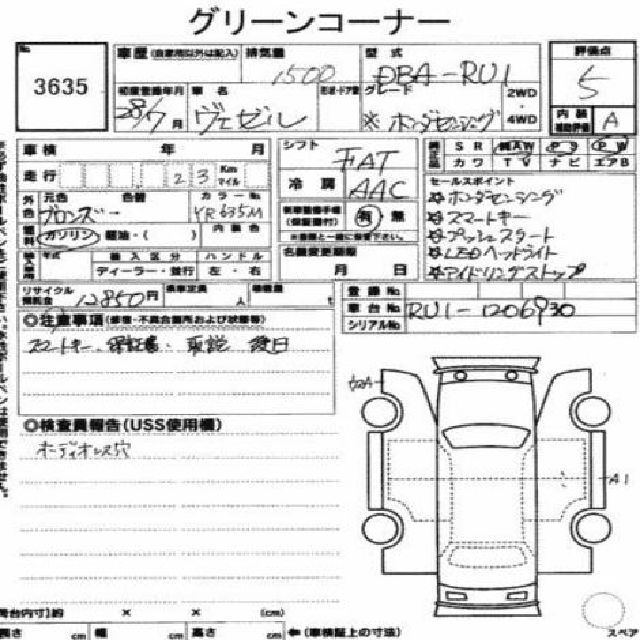 グリーンコーナー
No. 3635
車歴 (自家用以外は記入) 排気量 1500 型式 DBA-RU1
評価点 5
初度登録年月 28/7月 車名 ヴェゼル グレード ※ホンダセンシング 2WD・4WD
内装補助評価 A
車検 年 月
シフト FAT
SR AW PS PW
カワ TV ナビ エアB
走行 23 Km マイル
冷房 AAC
セールスポイント
外色 元色 ブロンズ 色替 カラーNo. YR635M
☆ホンダセンシング
有・無
☆スマートキー
燃料 ガソリン・軽油・( ) 内装色
☆プッシュスタート
☆LEDヘッドライト
名義変更期限 月 日
輸入区分 ハンドル
☆アイドリングストップ
ディーラー・並行 左・右
リサイクル預託金 12850円 乗車定員 人 積載量 t
登録No.
車台No. RU1-1206930
シリアルNo.
◎注意事項 (修復・不具合箇所および状態等)
スマートキー、保証書・取説 後日
◎検査員報告(USS使用欄)
オーディオレス穴
A1
荷台内寸】約 × × (cm)
長さ cm 幅 cm 高さ cm ←(車検証上の寸法)
スペア